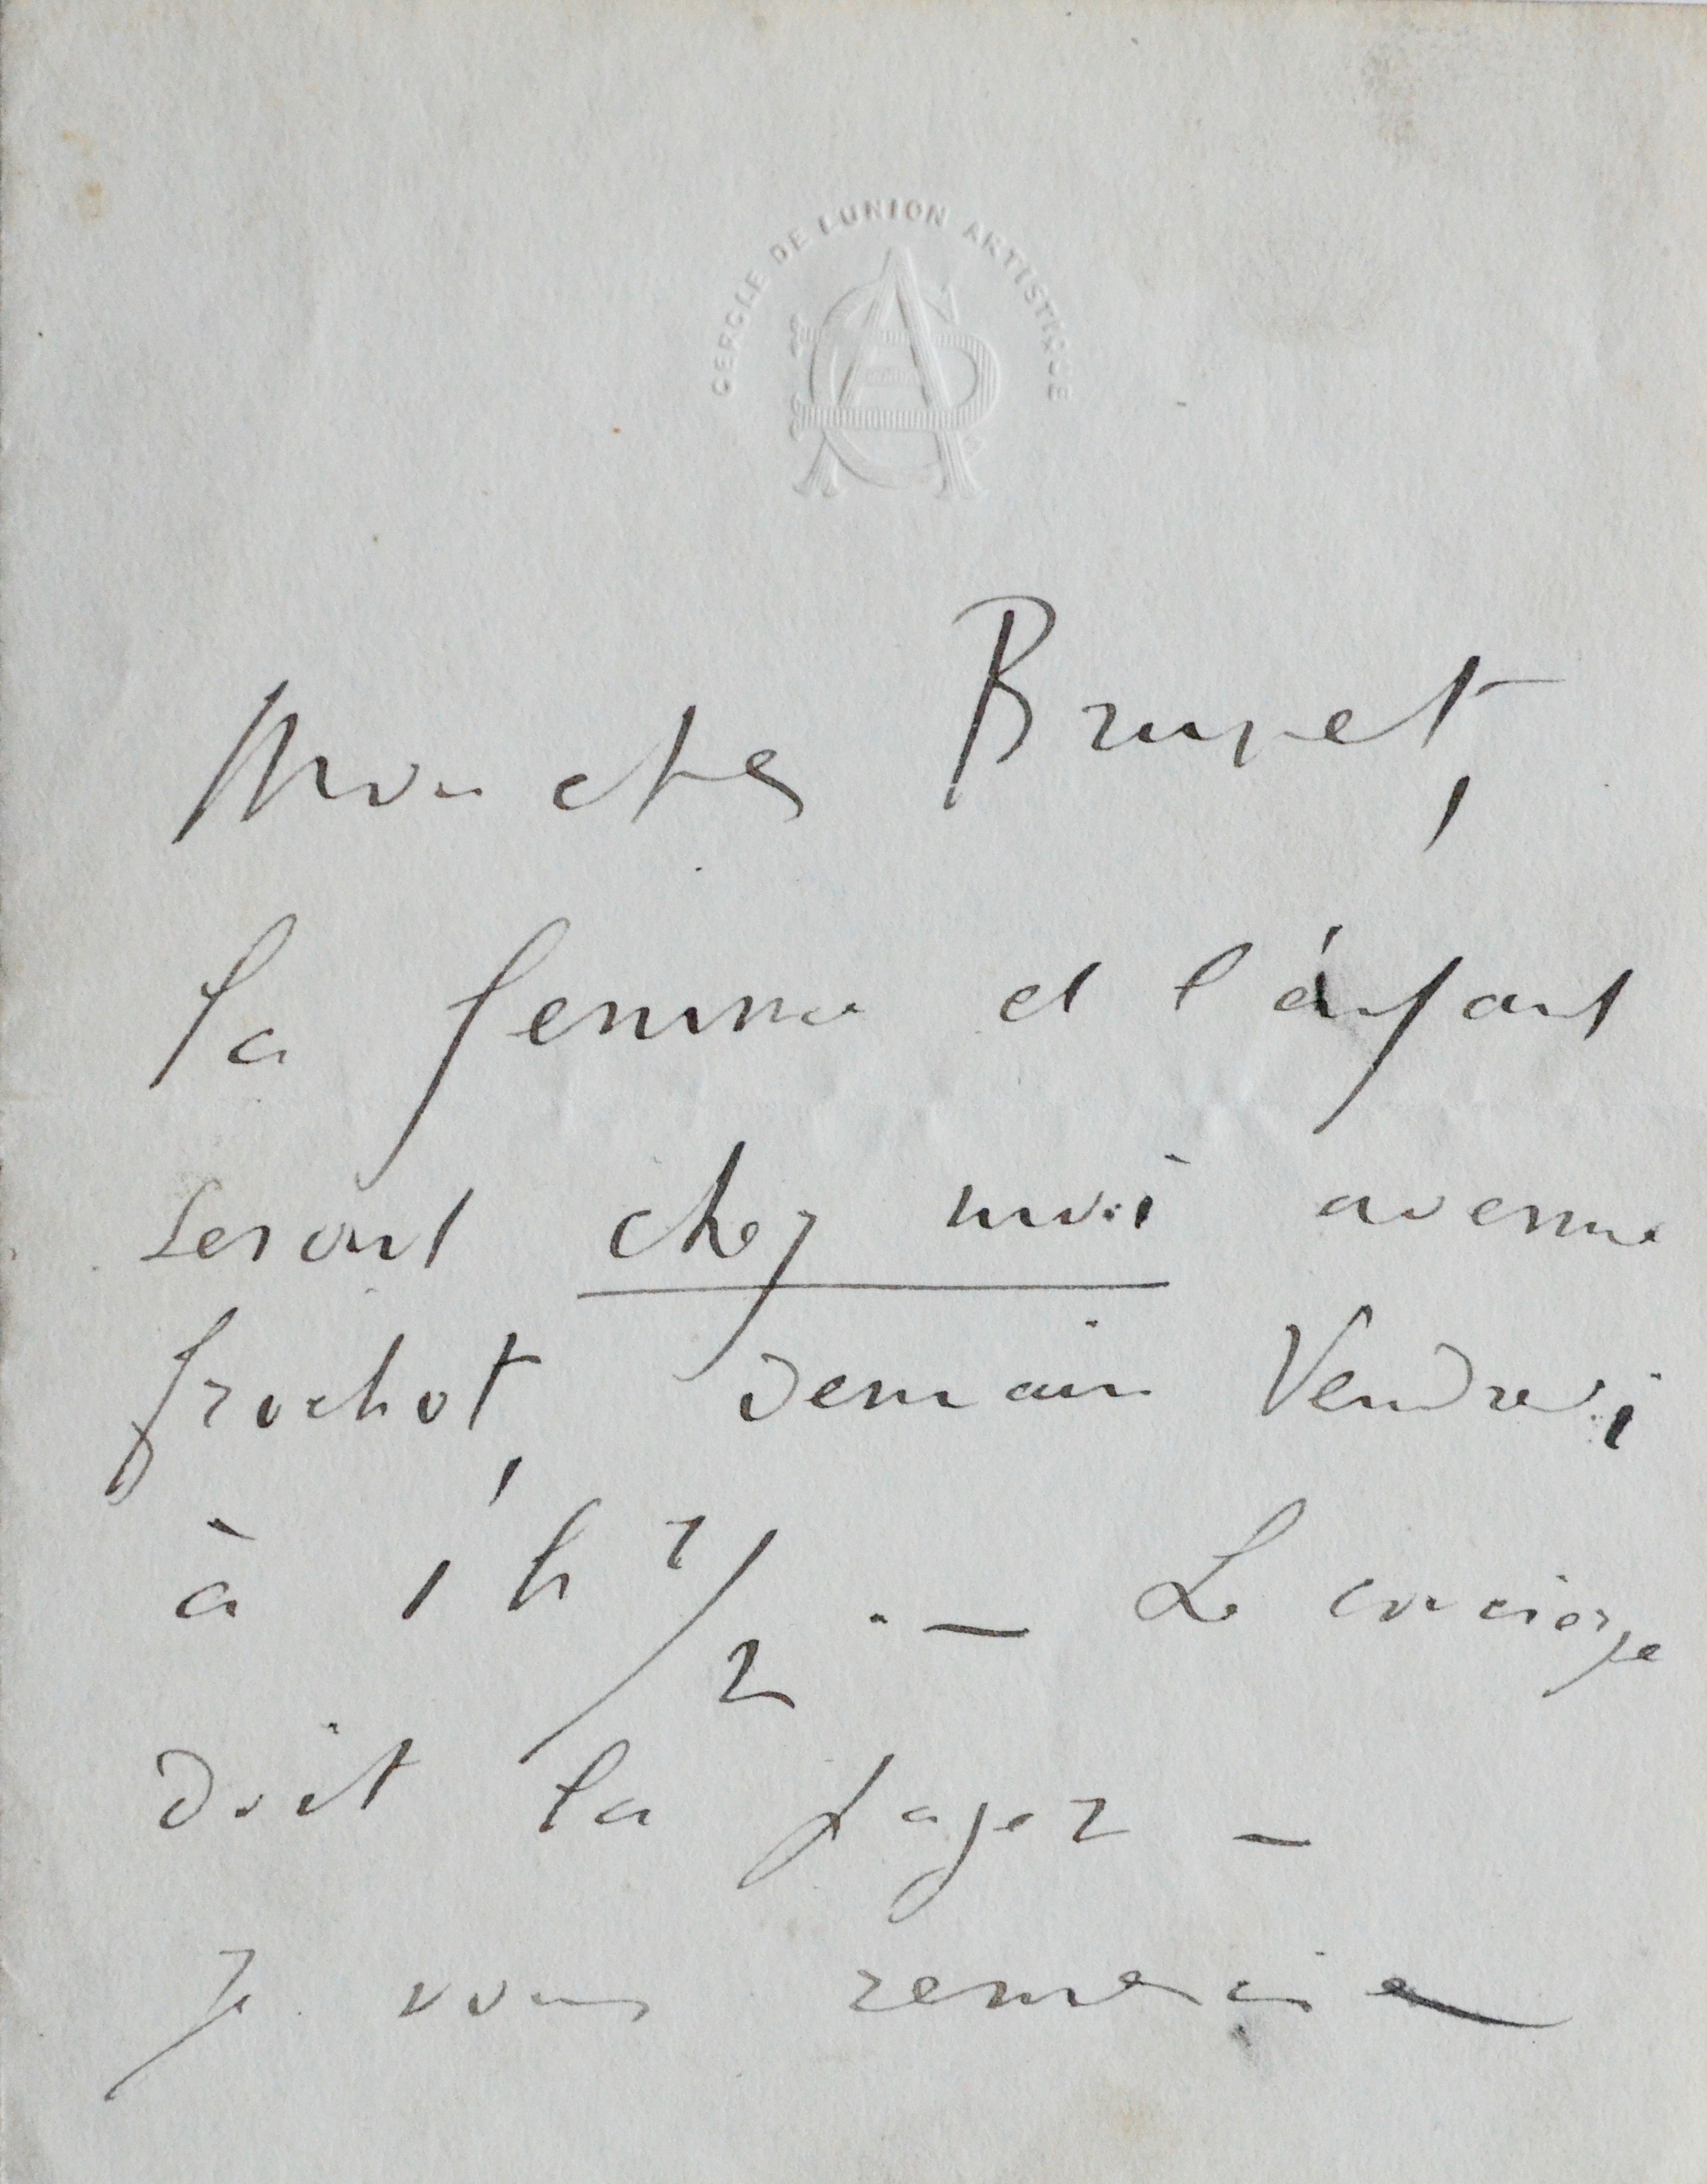 CERCLE DE L'UNION ARTISTIQUE
Mon cher Brunet,
la femme et l'enfant
seront chez moi avenue
frochot, demain Vendredi
à 1 h 1/2. — Le concierge
doit la payer —
Je vous remercie